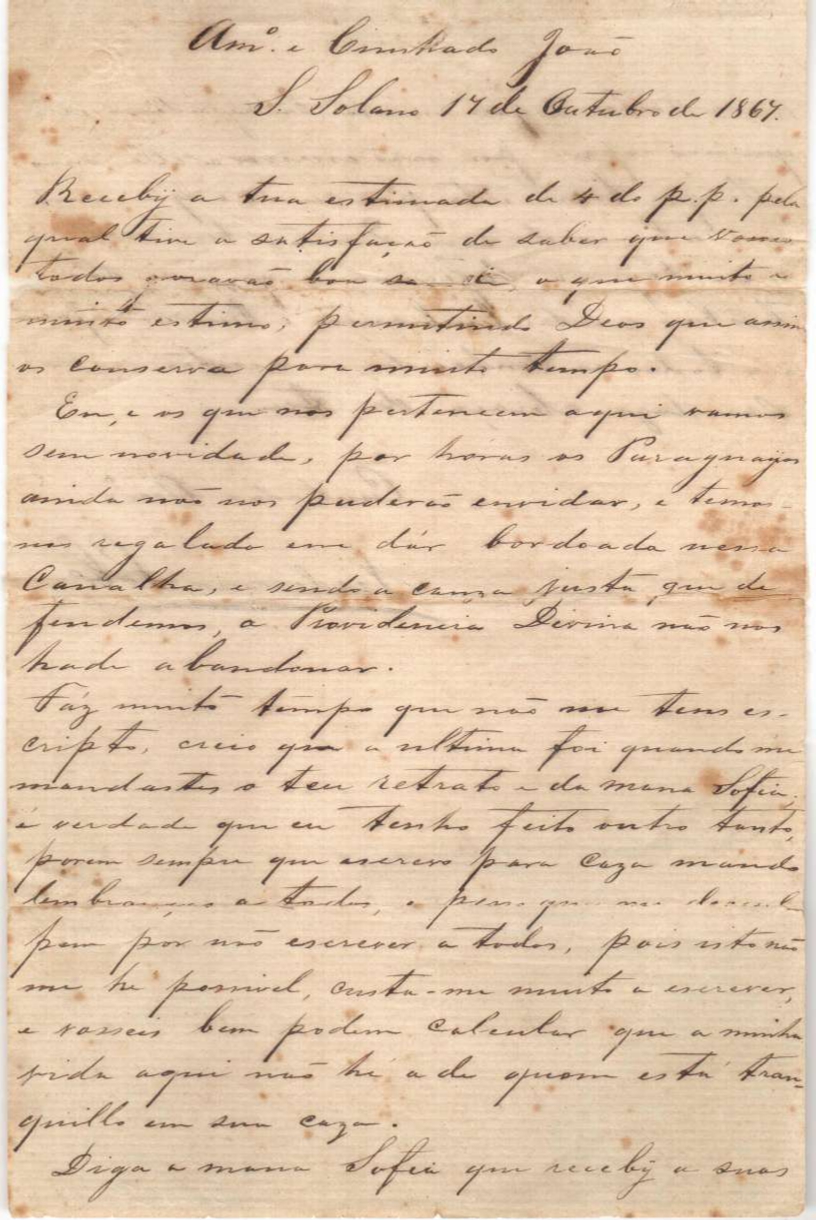 Amº. e Cunhado João
S. Solano 17 de Outubro de 1867.
Recebÿ a tua estimada de 4 do p.p. pela
qual tive a satisfação de saber que
todos bou o que muito e
muito estimo, permitindo Deos que assim
os conserva para muito tempo.
Eu, e os que nos pertencem aqui vamos
sem novidade, por hóras os Paraguayos
ainda não nos puderão envidar, e temos-
nos regalado em dár bordoada nessa
Canalha, e sendo a cauza justa que de
fendemos, a Providencia Divina não nos
hade abandonar.
Fáz muito tempo que não me tens es-
cripto, creio que a ultima foi quando me
mandastes o teu retrato e da mana Sofia,
é verdade que eu tenho feito outro tanto,
porem sempre que escrevo para caza mando
lembranças a todos, e que me descul
pem por não escrever a todos, pois isto não
me he possivel, custa-me muito a escrever,
e vosseis bem podem calcular que a minha
vida aqui não hé a de quem está tran-
quillo em sua caza.
Diga a mana Sofia que recebÿ a suas